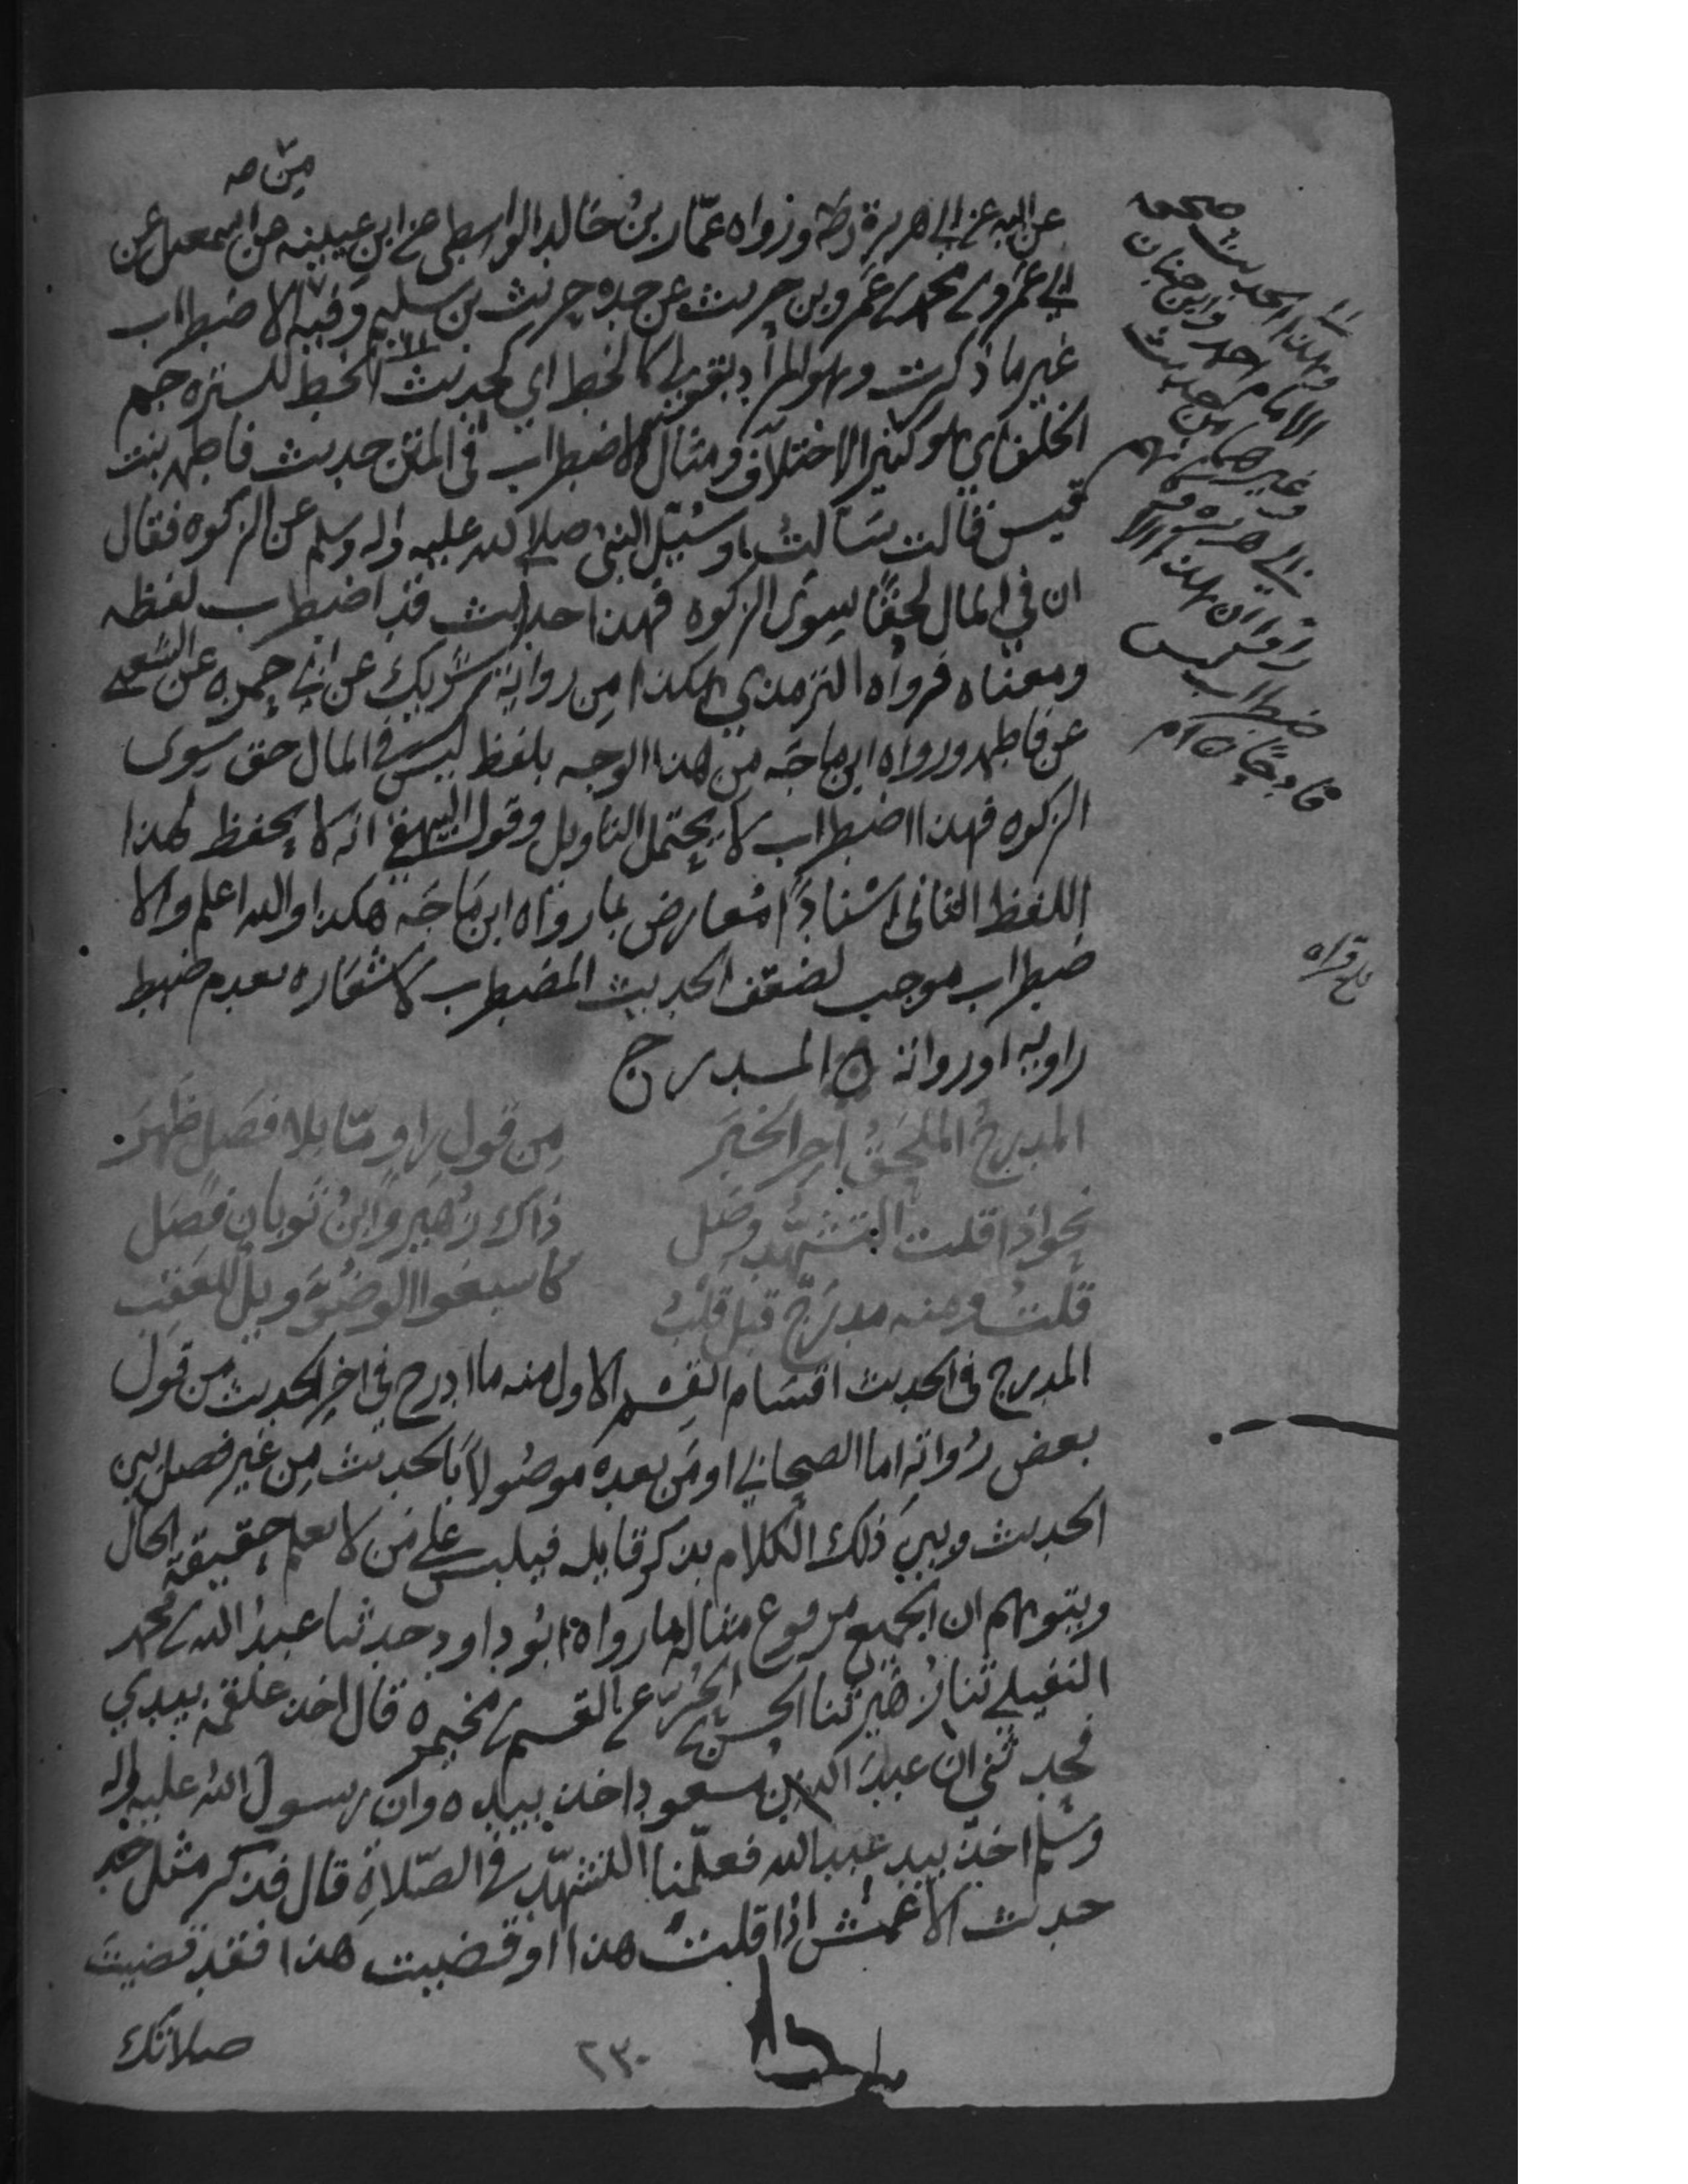 عن ابيه عن ابي هريرة رضه ورواه عمّار بن خالد الواسطي عن ابن عيينه عن اسمعيل عن
ابي عمرو بن محمد بن عمرو بن حريث عن جده حريث بن سليم وفيه الاضطراب
غير ما ذكرت وهو المراد بقوله كالخط اي كحديث الخط للستره جم
الخلف اي هو كثير الاختلاف ومثال الاضطراب في المتن حديث فاطمه بنت
قيس قالت سَالتُ او سُئِل النبي صلى الله عليه واله وسلم عن الزكوه فقال
ان في المال لحقًا سِوى الزكوه فهذا حديث قد اضطرب لفظه
ومعناه فرواه الترمذي هكذا من رواية شريك عن ابي حمزه عن الشعبي
عن فاطمه ورواه ابن ماجَه من هذا الوجه بلفظ ليس في المال حق سِوى
الزكوه فهذا اضطراب لا يحتمل التاويل وقول البيهقي انه لا يحفظ لهذا
اللفظ الثاني اسْنادًا مُعارض بما رواه ابن مَاجَه هكذا والله اعلم والا
ضطراب موجب لضعف الحديث المضطرب لاشعاره بعدم ضبط
راويه او رواته ○ المــدرج
المدرجُ الملحَقُ اخِرَ الخبَر مِن قول راوٍ مّا بلا فصَلٍ ظَهَر
نحو اذا قلت التشهّد وصَل ذاك زُهَير وابنُ ثوبان فصَل
قلتُ ومنه مدرَجٌ قبل قُلِبْ كاسبغوا الوضُوَ ويلٌ للعَقِب
المدرج في الحديث اقسَام القِسْم الاول منه ما ادرج في اخِر الحديث من قول
بعض رُواتِه اما الصحابي او مَن بعده موصُولاً بَالحديث مِن غير فصل بين
الحديث وبين ذلك الكلام بذكر قايله فيلبس على مَن لا يعلم حقيقة الحال
ويتوهم ان الجميع مرفوع مثاله ما رواه ابُو داود حدثنا عبدُ الله بن محمد
النفيلي ثنا زُهَير ثنا الحسن بن الحُرّ عن القسم بن مخيمره قال اخذ علقمه بيدي
فحدثني ان عبدَ الله بن مسعود اخذ بيده وان رسول الله عليه واله
وسلم اخذ بيد عبد الله فعلّمنا التشهّد في الصّلاةِ قال فذكر مثل حد
حديث الاعمش اذا قلتُ هذا او قضيت هذا فقد قضيتَ
صلاتك
٢٣٠
صححه
وهذا الحديث
الامام احمد وابن حبان
وغيرهما من حديث
ابي هريره
راوا ان هذا الا
ضطراب ليس
قادحًا ○ ام
بلغ قراه